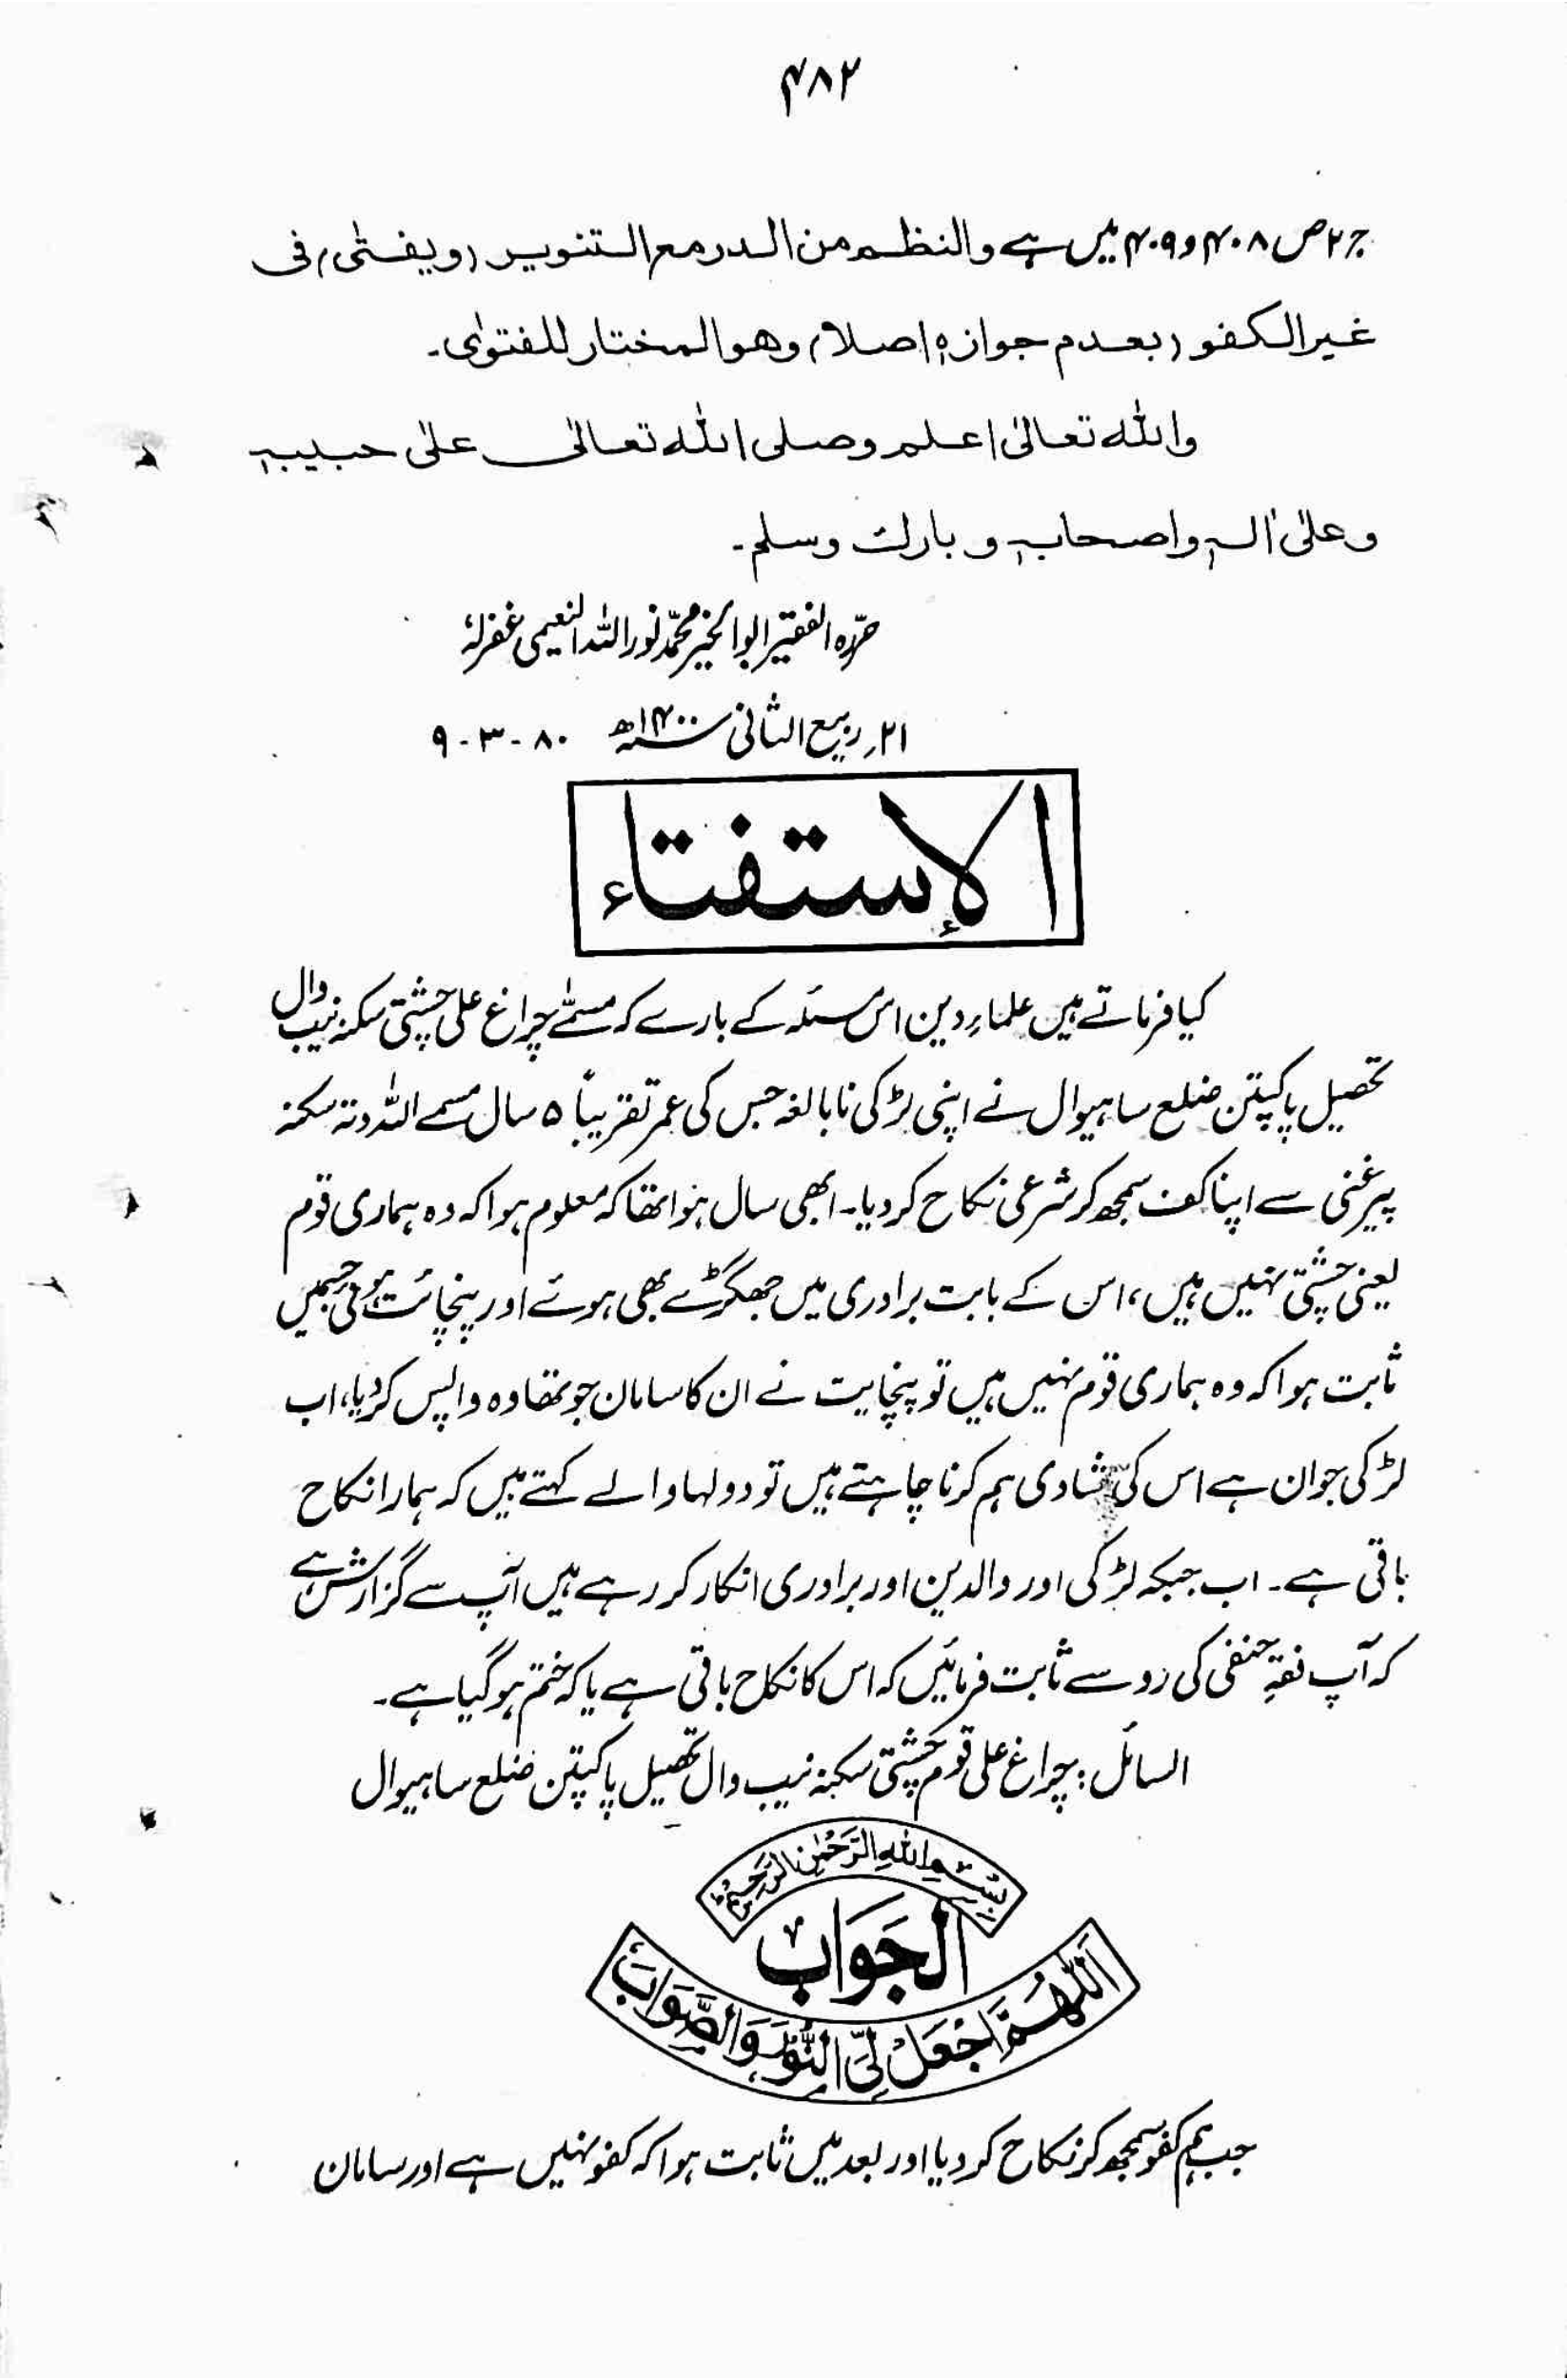 ۴۸۲
ج ۲ ص ۴۰۸ و ۴۰۹ میں ہے والنظم من الدر مع التنویر (ویفتی) فی
غیر الکفو (بعدم جوازہ اصلا) وھو المختار للفتوٰی۔
واللہ تعالیٰ اعلم وصلی اللہ تعالیٰ علیٰ حبیبہٖ
وعلیٰ اٰلہٖ واصحابہٖ وبارک وسلم۔
حررہ الفقیر ابوالخیر محمد نوراللہ النعیمی غفرلہٗ
۲۱؍ ربیع الثانی سنہ ۱۴۰۰ھ ۸۰-۳-۹
الاستفتاء
کیا فرماتے ہیں علماءِ دین اس مسئلہ کے بارے کہ مسمیٰ چراغ علی چشتی سکنہ نیب وال
تحصیل پاکپتن ضلع ساہیوال نے اپنی لڑکی نابالغہ جس کی عمر تقریباً ۵ سال مسمے اللہ دتہ سکنہ
پیر غنی سے اپنا کف سمجھ کر شرعی نکاح کر دیا۔ ابھی سال ہوا تھا کہ معلوم ہوا کہ وہ ہماری قوم
یعنی چشتی نہیں ہیں، اس کے بابت برادری میں جھگڑے بھی ہوئے اور پنچائت ہوئی جسمیں
ثابت ہوا کہ وہ ہماری قوم نہیں ہیں تو پنچایت نے ان کا سامان جو تھا وہ واپس کر دیا، اب
لڑکی جوان ہے اس کی شادی ہم کرنا چاہتے ہیں تو دولہا والے کہتے ہیں کہ ہمارا نکاح
باقی ہے۔ اب جبکہ لڑکی اور والدین اور برادری انکار کر رہے ہیں آپ سے گزارش ہے
کہ آپ فقہِ حنفی کی رو سے ثابت فرمائیں کہ اس کا نکاح باقی ہے یا کہ ختم ہو گیا ہے۔
السائل: چراغ علی قوم چشتی سکنہ نیب وال تحصیل پاکپتن ضلع ساہیوال
بِسْمِ اللهِ الرَّحْمٰنِ الرَّحِيْمِ
الجَوَابُ
اَللّٰهُمَّ اجْعَلْ لِّیَ النُّوْرَ وَالصَّوَابَ
جب ہم کفو سمجھ کر نکاح کر دیا اور بعد میں ثابت ہوا کہ کفو نہیں ہے اور سامان